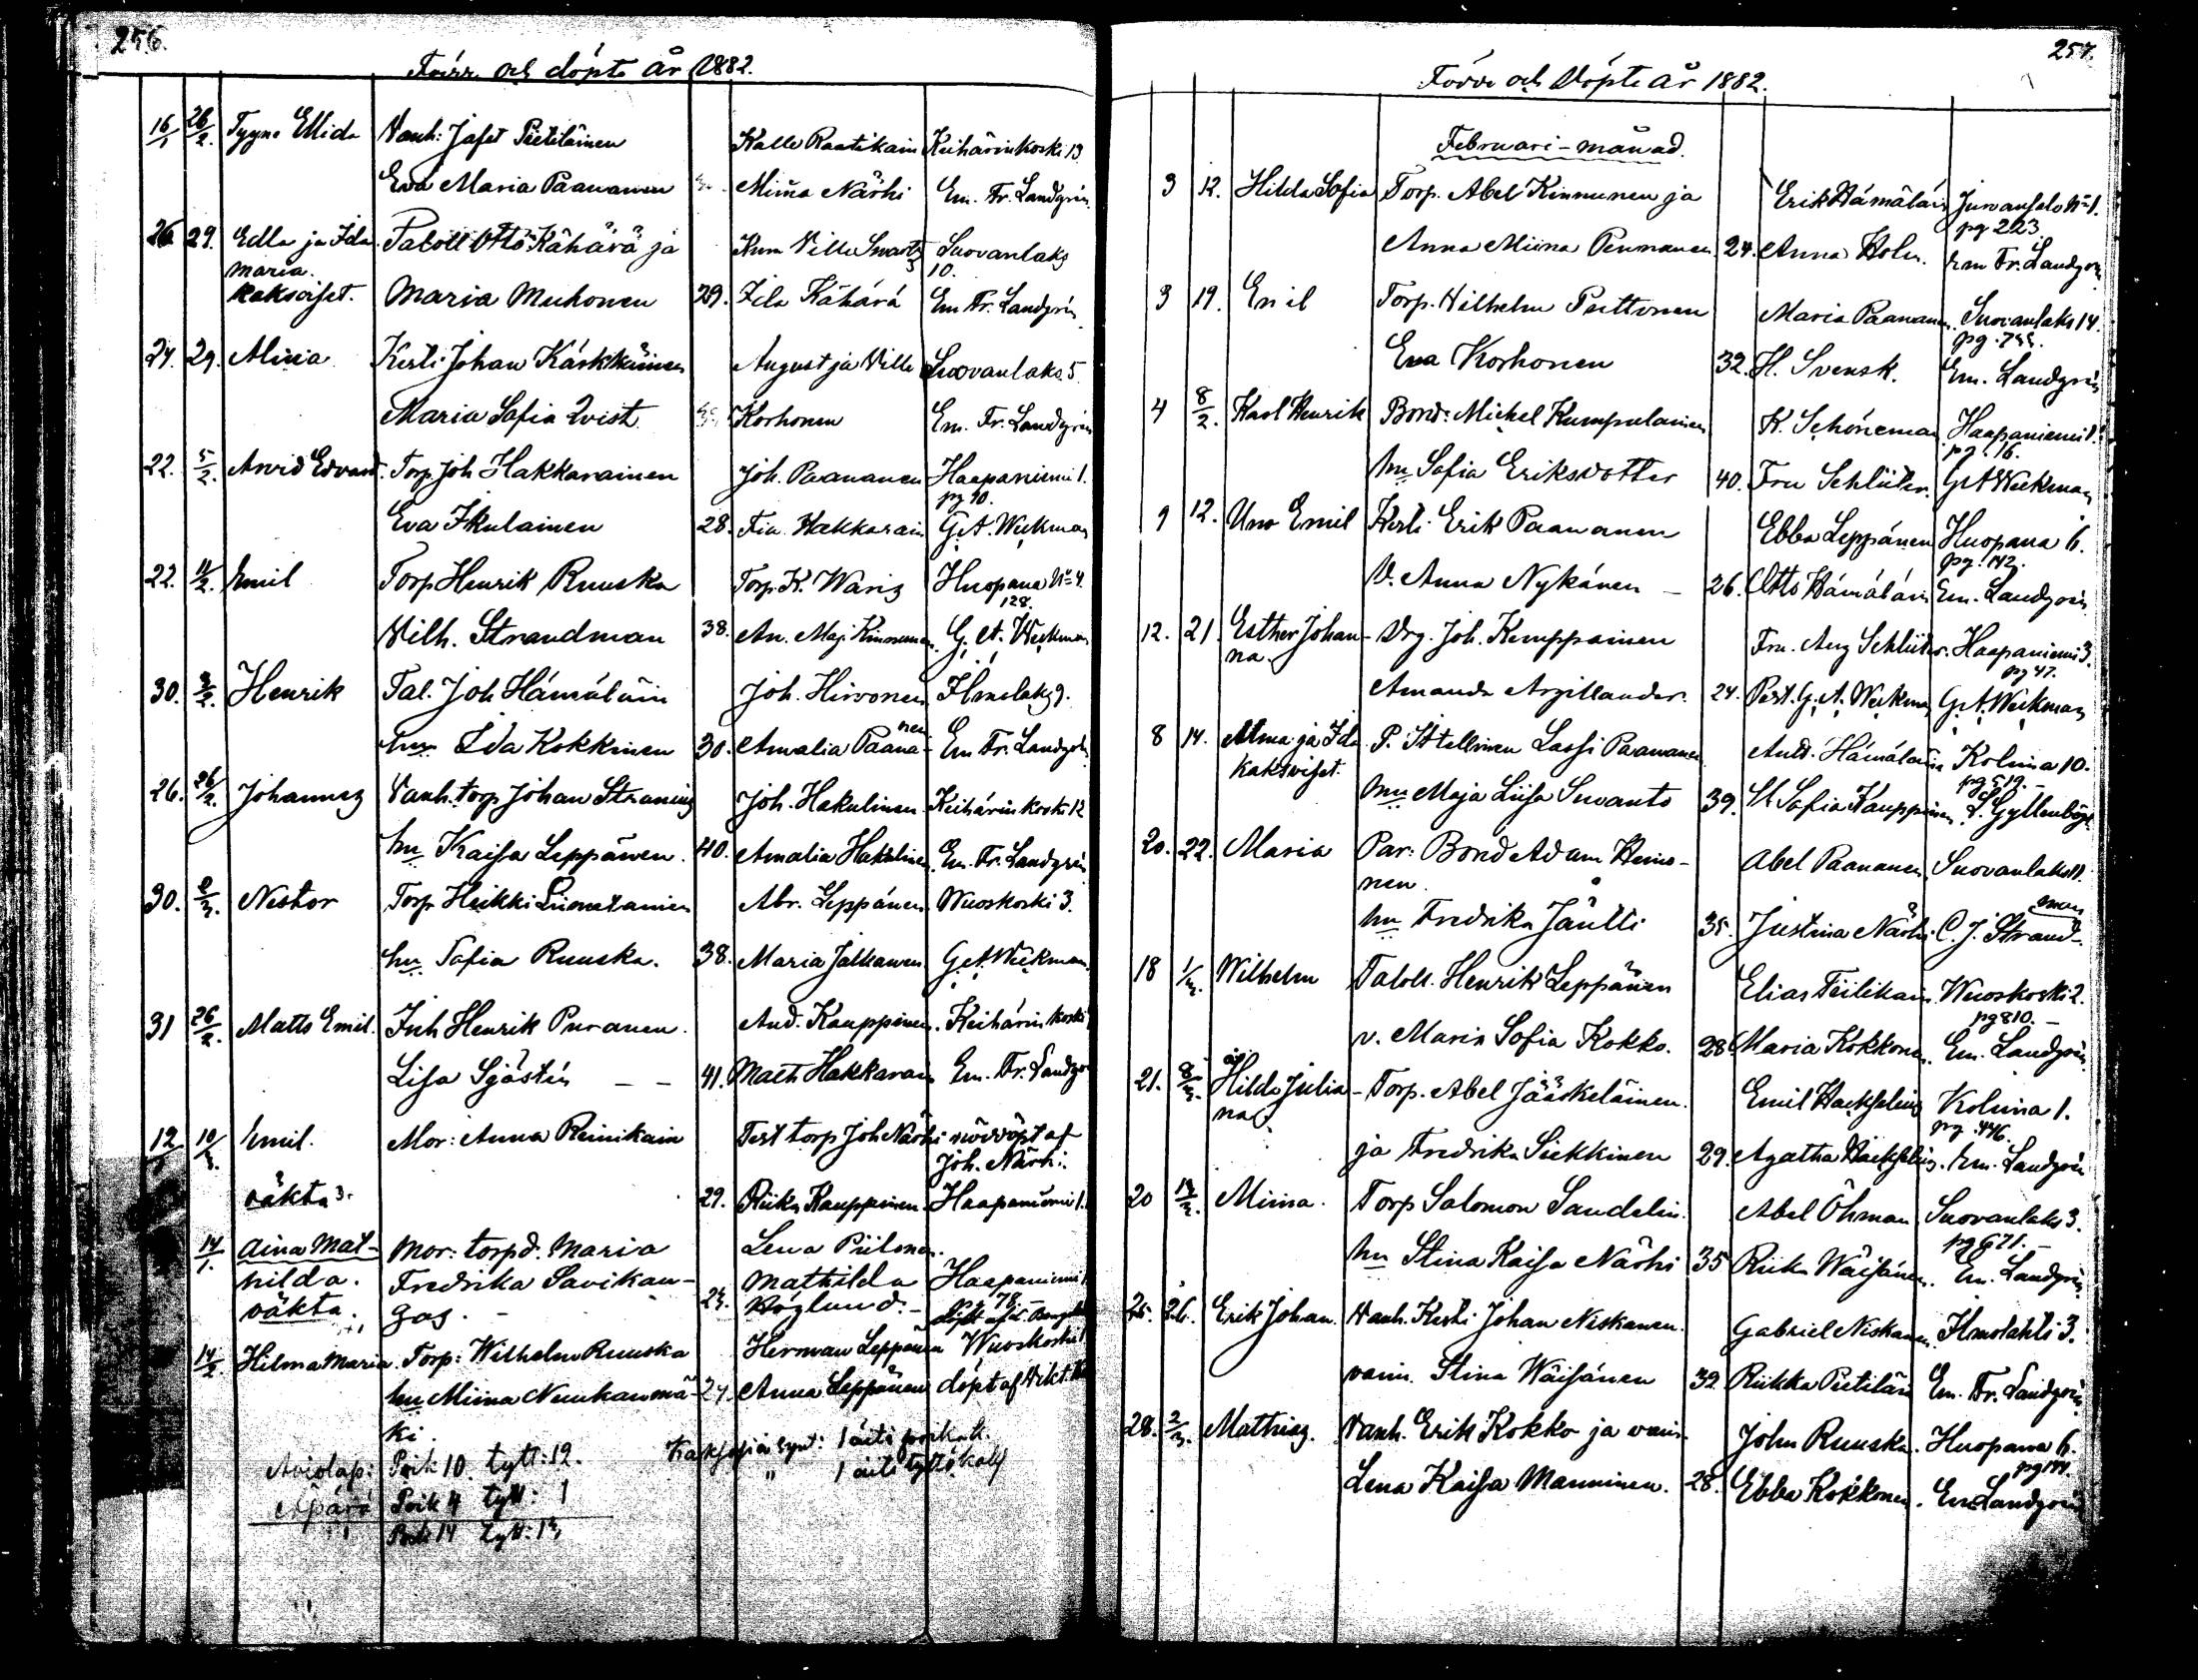 256.
Född och döpte år 1882.
16/1 26/2. Tyyne Ellida Vanh: Jafet Pietiläinen Kalle Raatikain Keihärinkoski 13
Eva Maria Paananen Miina Närhi Em. Fr. Landgrén
26 29. Edla ja Ida Taloll Otto Kähärä ja Ville Swartz Suovanlaks
Maria. 10.
kaksoiset. Maria Muhonen 29. Ida Kähärä Em Fr. Landgrén
27. 29. Miina Kesti Johan Kärkkäinen August ja Ville Suovanlaks 5.
Maria Sofia Qvist Korhonen Em. Fr. Landgrén
22. 5/2. Arvid Edvard. Torp Joh Hakkarainen Joh. Paananen Haapaniemi 1.
pg 10.
Eva Ikulainen 28. Fia. Hakkarain G. A. Weckman
22. 11/2. Emil Torp Henrik Ruuska Torp. K. Waris Huopana No 4.
128.
Vilh. Strandman 38. An. Maj. Kinnunen. G. A. Weckman
30. Henrik Tal. Joh Hämäläin Joh. Hirvonen Ilmolaks 9.
nen
hu Ida Kokkinen 30. Amalia Paana- Em Fr. Landgrén
26. 26/2. Johannes Vanh. torp Johan Straning Joh. Hakulinen Keihärinkoski 12
hu Kaisa Leppänen. 40. Amalia Hakulinen Em. Fr. Landgrén
30. Nestor Torp Heikki Liimatainen Abr. Leppänen Wuoskoski 3.
hu Sofia Ruuska. 38. Maria Jalkanen G. A. Weckman
31 26/2. Matts Emil. Inh Henrik Puranen. And. Kauppinen. Keihärinkoski
Lisa Sjöstén – – 41. Math Hakkarain Em. Fr. Landgr
12 10/3. Emil. Mor: Anna Reinikain Test torp Joh Närhi nöddöpt af
Joh. Närhi.
oäkta 3. 29. Riika Kauppinen. Haapaniemi 1.
14/1. Aina Mat- Mor: torpd. Maria Lena Piilonen.
hilda. Fredrika Savikan- Mathilda Haapaniemi
oäkta. gas. – 23. Höglund. – pg 78
14/2. Hilma Maria. Torp: Wilhelm Ruuska Herman Leppänen Wuoskoski
hu Miina Niinkanmä- 27. Anna Leppänen döpt af Vikt.
ki.
Aviolap: Poik 10. tytt: 12. Kaksosia synt: 1 äiti poikal.
Äpärä Poik 4 tytt: 1 " 1 äiti tyttökaks
Poik 14 tytt: 13,
257.
Födde och Döpte år 1882.
Februari-månad.
3 12. Hilda Sofia Torp. Abel Kinnunen ja Erik Hämäläin Jurvansalo No 1.
pg 223.
Anna Miina Penmanen 24. Anna Holm. Em Fr. Landgrén
3 19. Emil Torp. Vilhelm Puttonen Maria Paananen. Suovanlaks 14.
Eva Korhonen 32. H. Svensk. Em. Landgrén
4 8/2. Karl Henrik Bond: Michel Kumpulainen K. Schöneman Haapaniemi 1.
pg. 16.
hu Sofia Eriksdotter 40. Fru Schlüter. G A Weckman
9 12. Uno Emil Kesti. Erik Paananen Ebba Leppänen Huopana 6.
pg. 142.
V. Anna Nykänen – 26. Otto Hämäläin Em. Landgrén
12. 21. Esther Johan- Drg. Joh. Kemppainen Fru. Aug Schlüter. Haapaniemi 3.
na. pg 47.
Amanda Argillander. 24. Past. G. A. Weckman G. A. Weckman
8 14. Alma ja Ida P. Itsellinen Lassi Paananen And. Hämäläin Kolima 10.
kaksoiset. pg 519. –
hu Maja Liisa Suvanto 39. Sofia Kauppinen. Gyllenbög
20. 22. Maria Par: Bond Adam Heino- Abel Paananen Suovanlaks 11.
nen.
man
hu Fredrika Jäntti 35. Justina Närhi. C. J. Strand-
18 1/3. Wilhelm Taloll. Henrik Leppänen Elias Teilikain. Wuoskoski 2.
pg 810. –
v. Maria Sofia Kokko. 28. Maria Kokkonen. Em. Landgrén
21. 8/3. Hilda Julia- Torp. Abel Jääskeläinen. Emil Hackselius Kolima 1.
na. pg. 446.
ja Fredrika Siekkinen 29. Agatha Hackselius. Em. Landgrén
20 Miina. Torp Salomon Sandelin. Abel Öhman Suovanlaks 3.
pg 671. –
hu Stina Kaisa Närhi 35 Riika Wäisänen. Em. Landgrén
25. 26. Erik Johan. Vanh. Kesti Johan Niskanen. Gabriel Niskanen. Ilmolahti 3.
vaim. Stina Wäisänen 39 Riikka Pietiläin Em. Fr. Landgrén
28. 2/3. Mathias. Vanh. Erik Kokko ja vaim. John Ruuska. Huopana 6.
pg 144.
Lena Kaisa Manninen. 28. Ebba Kokkonen. Em Landgrén